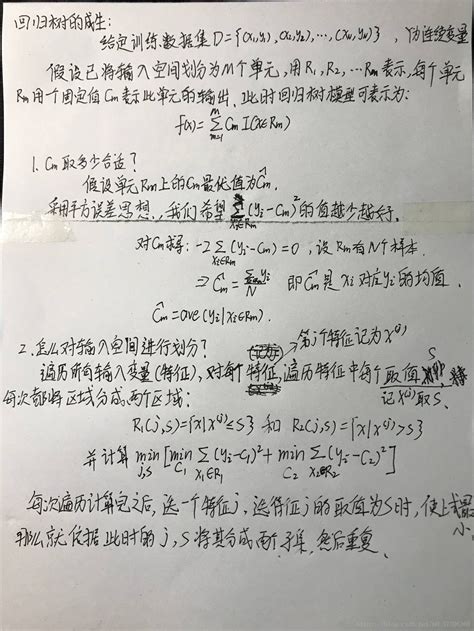 回归树的成生:
给定训练数据集D={(x₁,y₁), (x₂,y₂), ..., (x_N,y_N)}, y为连续变量
假设已将输入空间划分为M个单元,用R₁,R₂,...R_m表示,每个单元
R_m用一个固定值C_m表示此单元的输出,此时回归树模型可表示为:
f(x)=∑_{m=1}^{M} C_m I(x∈R_m)
1. C_m取多少合适?
假设单元R_m上的C_m最优值为Ĉ_m.
采用平方误差思想,我们希望∑_{x_i∈R_m}(y_i-C_m)²的值越小越好.
对C_m求导: -2∑_{x_i∈R_m}(y_i-C_m)=0, 设R_m有N个样本.
⇒ Ĉ_m=∑y_i/N 即Ĉ_m是x_i对应y_i的均值.
Ĉ_m=ave(y_i|x_i∈R_m).
2. 怎么对输入空间进行划分? 第j个特征记为x^(j)
遍历所有输入变量(特征),对每个特征,遍历特征中每个取值S
记x^(j)取S.
每次都将区域分成两个区域:
R₁(j,s)={x|x^(j)≤S} 和 R₂(j,s)={x|x^(j)>S}
并计算 min_{j,s}[min_{C₁}∑_{x_i∈R₁}(y_i-C₁)²+min_{C₂}∑_{x_i∈R₂}(y_i-C₂)²]
每次遍历计算完之后,选一个特征j,选特征j的取值为S时,使上式最
小,
那么就依据此时的j,S将其分成两个子集,然后重复.